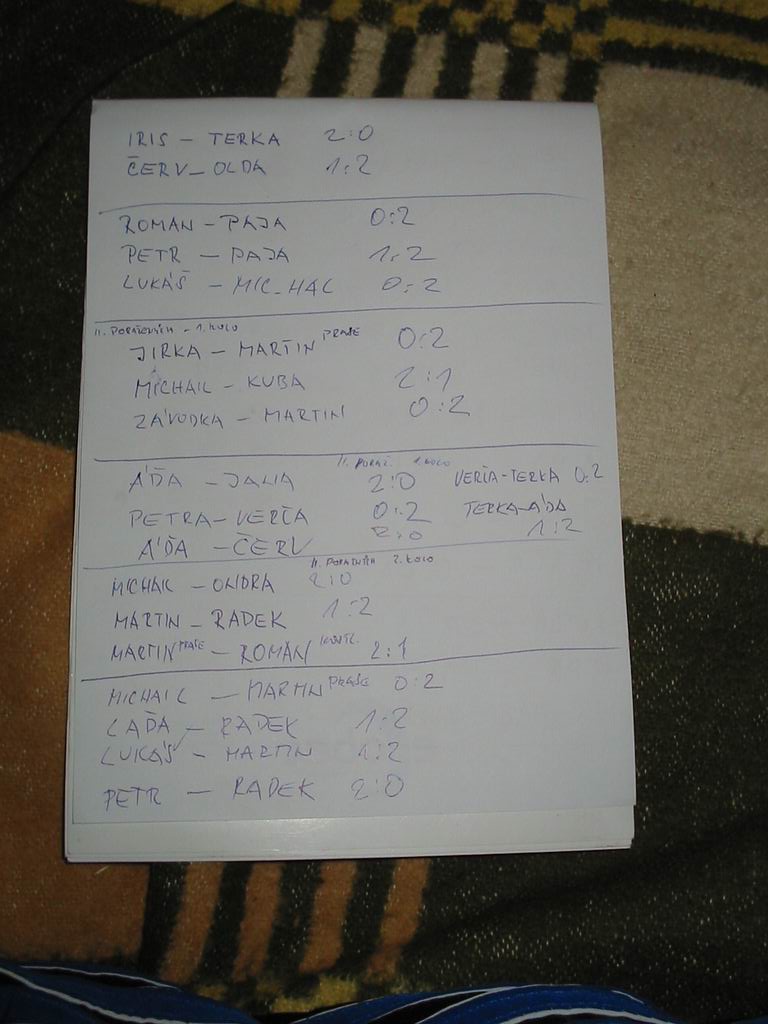 IRIS - TERKA 2:0
ČERV - OLDA 1:2
ROMAN - PAJA 0:2
PETR - PAJA 1:2
LUKÁŠ - MICHAL 0:2
II. PORAŽENÝCH - 1. KOLO
JIRKA - MARTIN PRASE 0:2
MICHAL - KUBA 2:1
ZÁVODKA - MARTIN 0:2
II. PORAŽ. 1. KOLO
ÁĎA - JANA 2:0 VERČA-TERKA 0:2
PETRA - VERČA 0:2 TERKA-ÁĎA
ÁĎA - ČERV 2:0 1:2
II. PORAŽENÝCH 2. KOLO
MICHAL - ONDRA 2:0
MARTIN - RADEK 1:2
MARTIN PRASE - ROMAN 2:1
MICHAL - MARTIN PRASE 0:2
LAĎA - RADEK 1:2
LUKÁŠ - MARTIN 1:2
PETR - RADEK 2:0